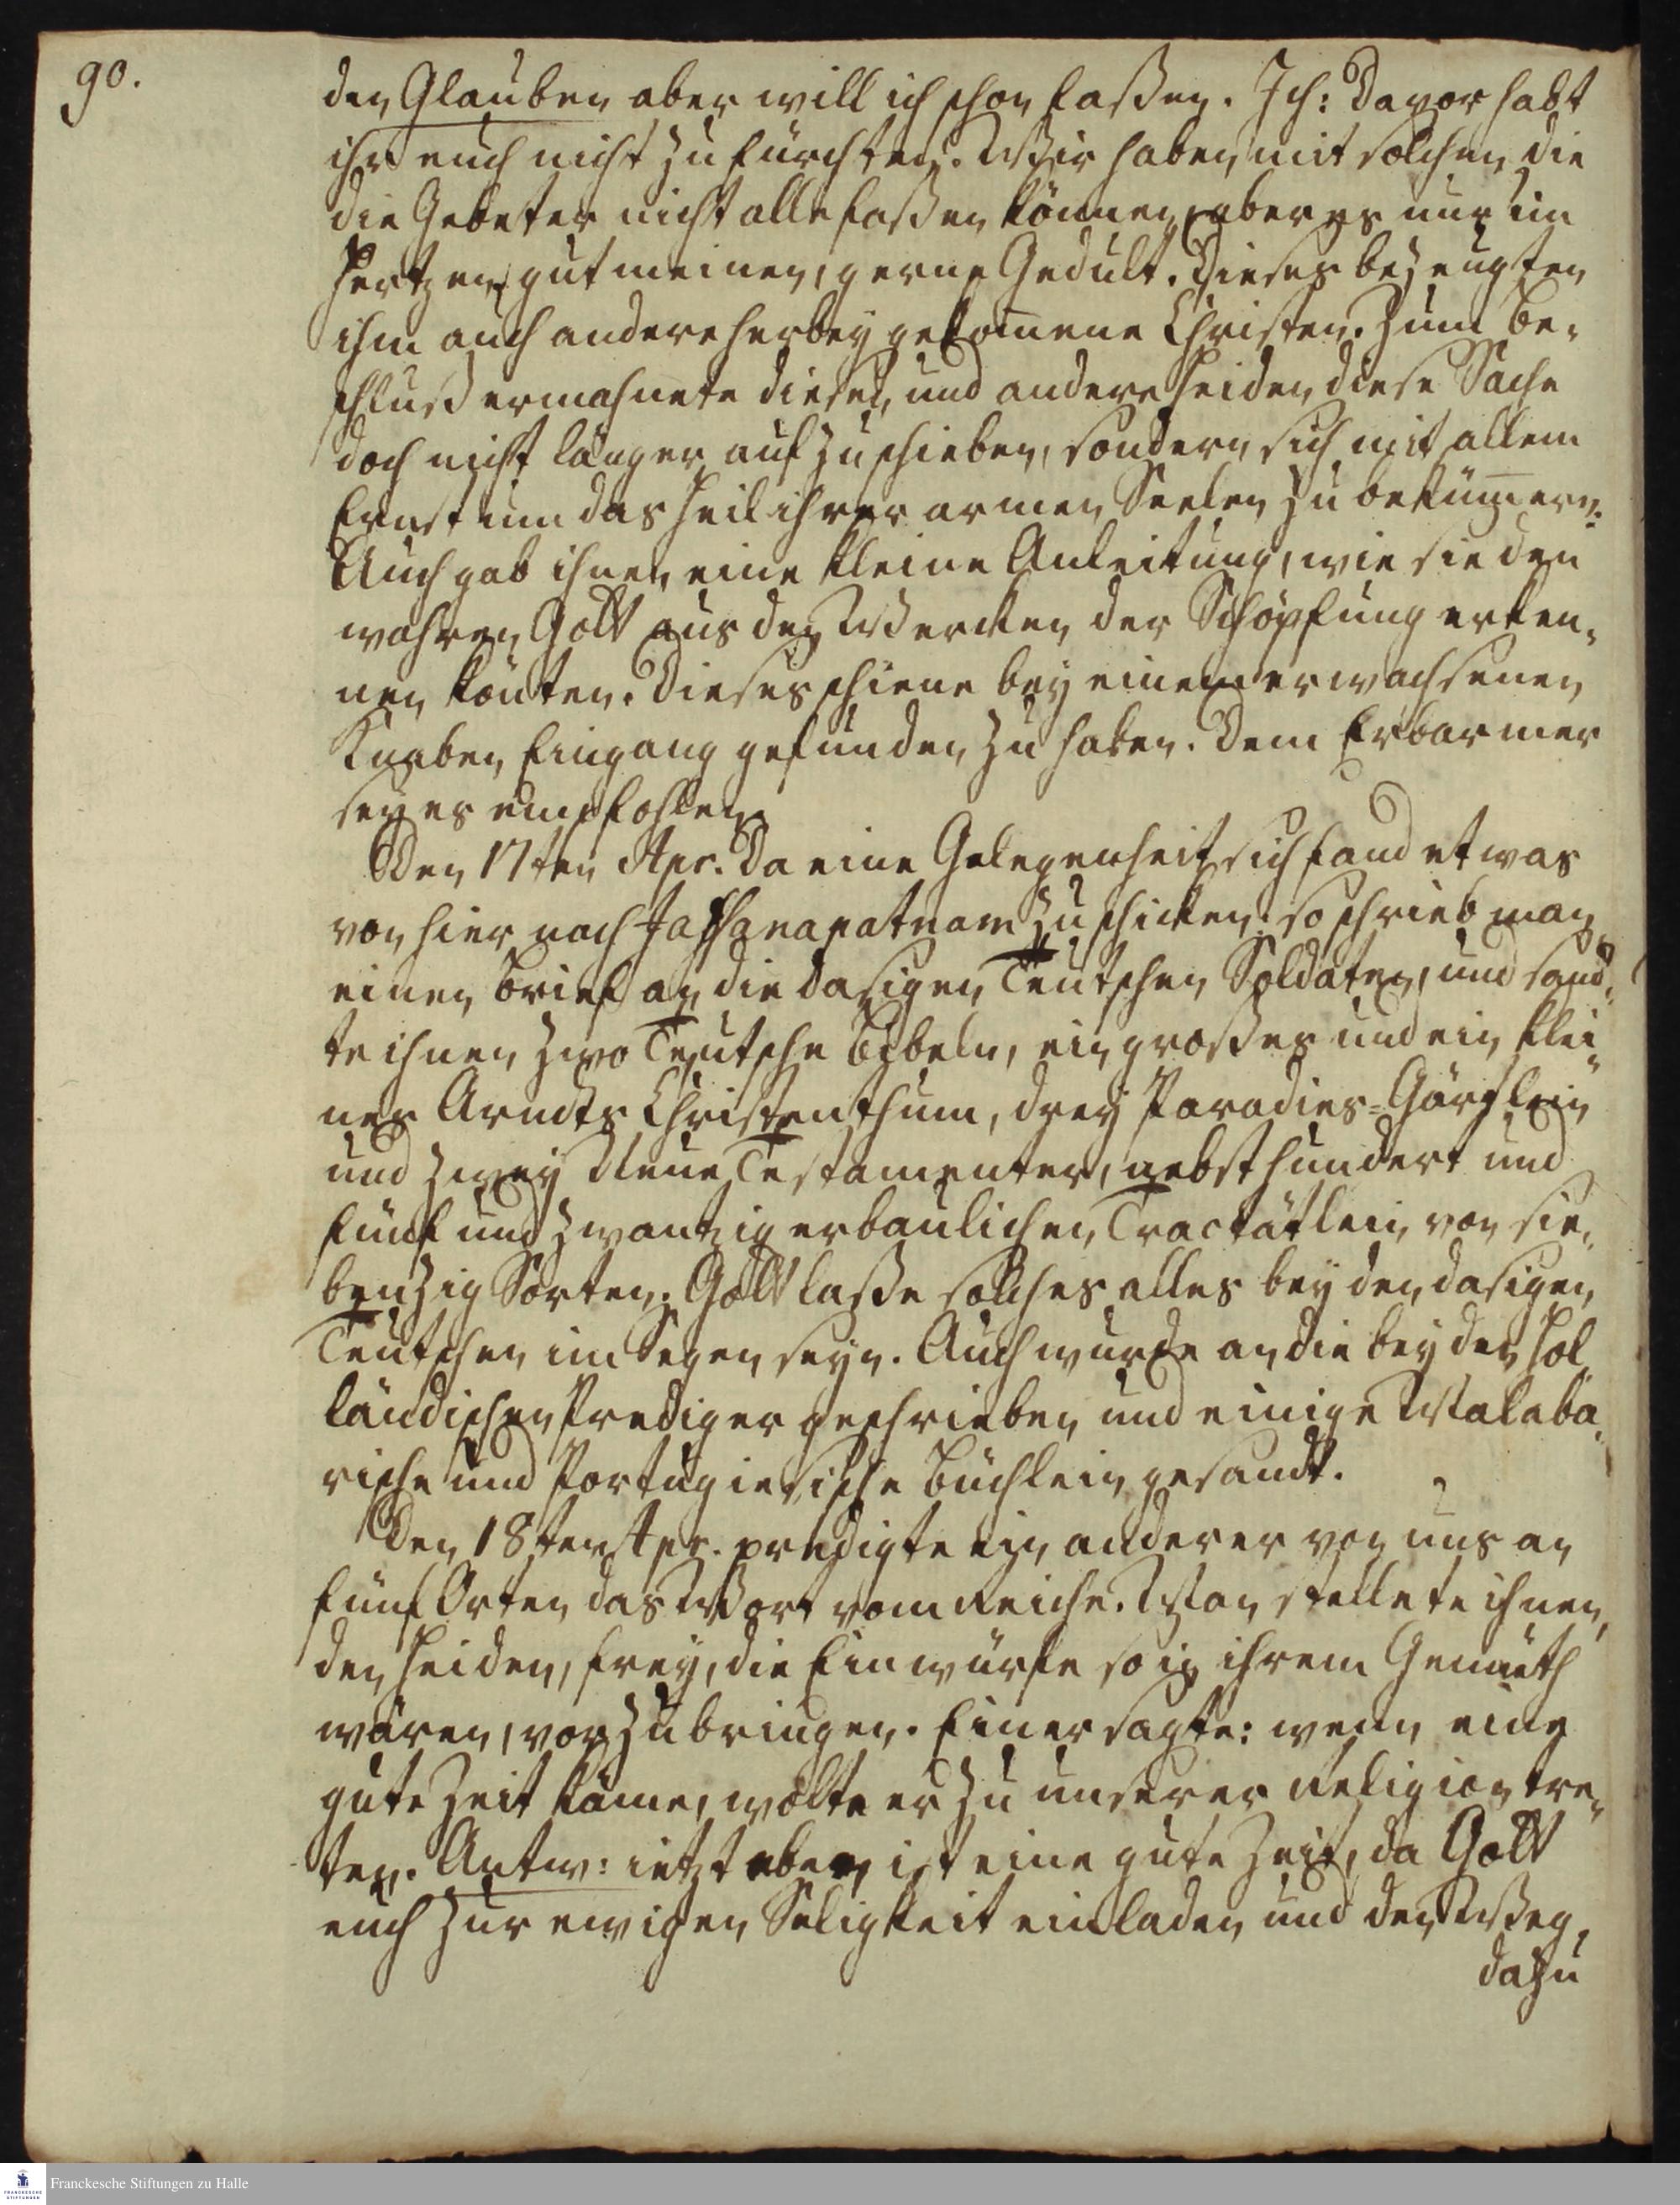 90.
den Glauben aber will ich schon faßen. Ich: Davor habt
ihr euch nicht zu fürchten. Wir haben mit solchen, die
die Gebeter nicht alle faßen können, aber es nur im
Hertzen gut meinen, gerne Gedult. Dieses bezeugten
ihm auch andere herbey gekom̅ene Christen. Zum Be-
schluß ermahnete diesen, und andere Heiden, diese Sache
doch nicht länger aufzuschieben, sondern sich mit allem
Ernst um das Heil ihrer armen Seelen zu beküm̅ern.
Auch gab ihnen eine kleine Anleitung, wie sie den
wahren Gott aus den Wercken der Schöpfung erken-
nen könten. Dieses schiene bey einem erwachsenen
Knaben Eingang gefunden zu haben. Dem Erbarmer
sey es empfohlen.
Den 17ten Apr. Da eine Gelegenheit sich fand etwas
von hier nach Jaffanapatnam zu schicken: so schrieb man
einen Brief an die dasigen Teutschen Soldaten, und sand-
te ihnen zwo Teutsche Bibeln, ein großes und ein klei-
nes Arndts Christenthum, drey Paradies-Gärtlein
und zwey Neue Testamenter, nebst hundert und
fünf und zwantzig erbaulichen Tractätlein von sie-
benzig Sorten. Gott laße solches alles bey den dasigen
Teutschen im Segen seyn. Auch wurde an die beyden Hol-
ländischen Prediger geschrieben und einige Malaba-
rische und Portugiesische Büchlein gesandt.
Den 18ten Apr. predigte ein anderer von uns an
fünf Orten das Wort vom Reiche. Man stellete ihnen,
den Heiden, frey, die Einwürfe so in ihrem Gemüth
wären, vorzubringen. Einer sagte: wenn eine
gute Zeit käme, wolte er zu unserer Religion tre-
ten. Antw: ietzt eben ist eine gute Zeit, da Gott
euch zur ewigen Seligkeit einladen und den Weg
dazu
Franckesche Stiftungen zu Halle